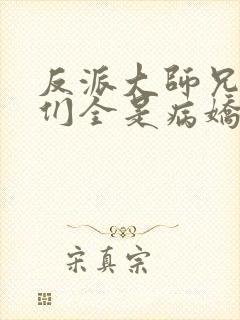 反派大師兄
们全是病嬌
宋真宗